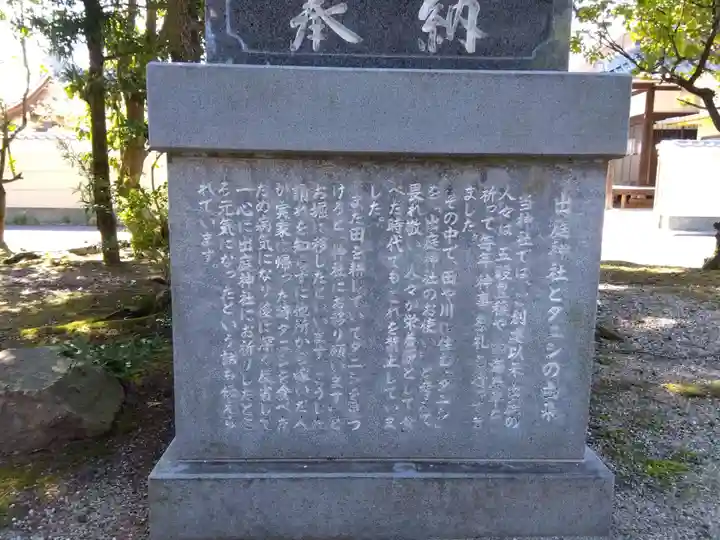 奉納
出庭神社とタニシの由来
当神社では、御創建以来、出庭の
人々は、五穀豊穣や
祈って毎年神事・祭礼を
ました。
その中で、田や川に住む「タニシ」
を「出庭神社のお使い」と
畏れ敬い、人々が栄養源として食
べた時代でもこれを禁止していま
した。
また田を耕していてタニシを見つ
けると「神社にお移り願います」と
お堀に移したといいます。こうした
慣わしを知らずに他所から嫁いだ人
が実家に帰った時タニシを食べた
ため病気になり後に深く反省して
一心に出庭神社にお祈りしたとこ
ろ元気になったという話も伝えら
れています。